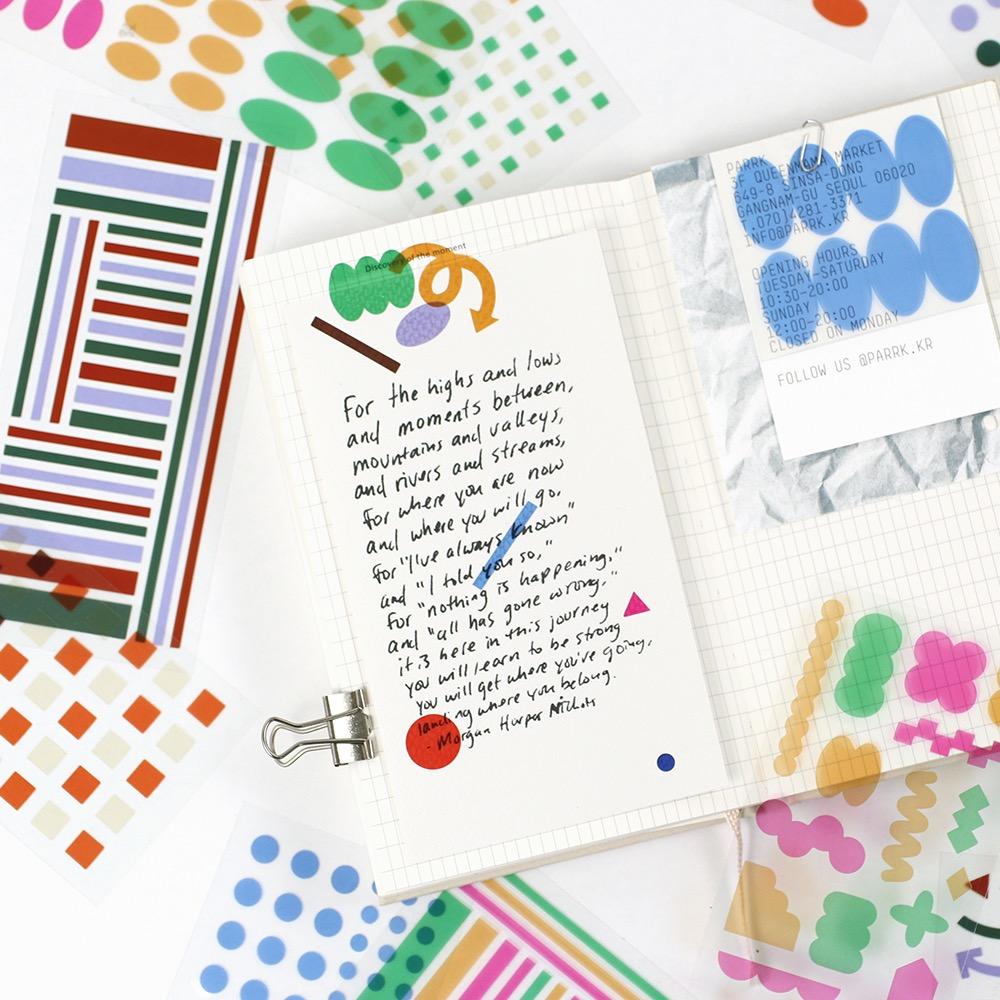 Discovery of the moment
For the highs and lows
and moments between,
mountains and valleys,
and rivers and streams,
for where you are now
and where you will go.
for "I've always known"
and "I told you so,"
for "nothing is happening,"
and "all has gone wrong."
it is here in this journey
you will learn to be strong
you will get where you're going,
landing where you belong.
- Morgan Harper Nichols
PARRK
3F QUEENMAMA MARKET
649-8 SINSA-DONG
GANGNAM-GU SEOUL 06020
T.070)4281-3371
INFO@PARRK.KR
OPENING HOURS
TUESDAY-SATURDAY
10:30-20:00
SUNDAY
12:00-20:00
CLOSED ON MONDAY
FOLLOW US @PARRK.KR